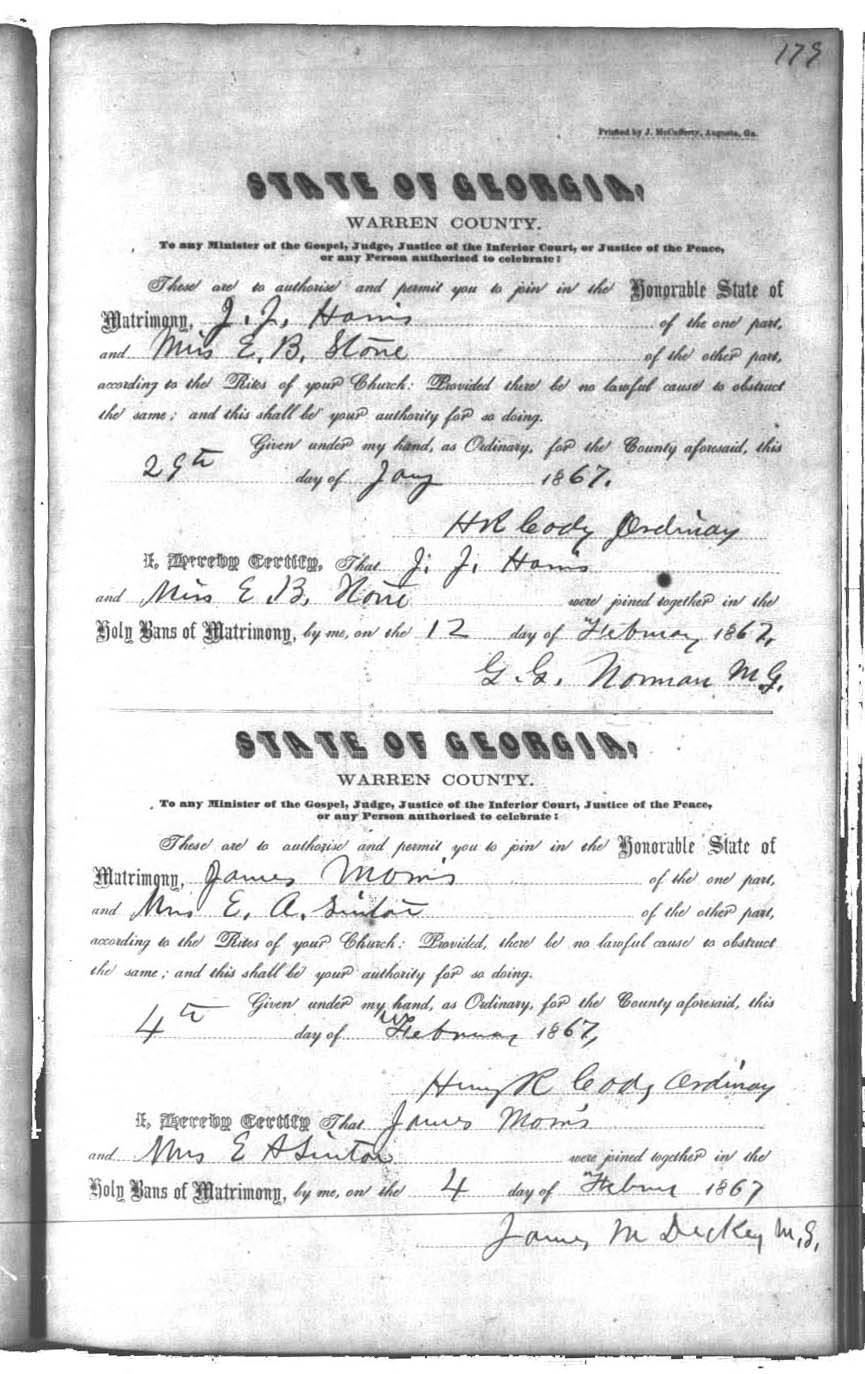 179
Printed by J. McCafferty, Augusta, Ga.
STATE OF GEORGIA,
WARREN COUNTY.
To any Minister of the Gospel, Judge, Justice of the Inferior Court, or Justice of the Peace,
or any Person authorised to celebrate:
These are to authorise and permit you to join in the Honorable State of
Matrimony, J. J. Harris of the one part,
and Miss E. B. Stone of the other part,
according to the Rites of your Church: Provided there be no lawful cause to obstruct
the same; and this shall be your authority for so doing.
Given under my hand, as Ordinary, for the County aforesaid, this
29th day of Jany 1867.
H R Cody Ordinary
I, Hereby Certify, That J. J. Harris
and Miss E. B. Stone were joined together in the
Holy Bans of Matrimony, by me, on the 12 day of February 1867,
G. G. Norman M.G.
STATE OF GEORGIA,
WARREN COUNTY.
To any Minister of the Gospel, Judge, Justice of the Inferior Court, Justice of the Peace,
or any Person authorised to celebrate:
These are to authorise and permit you to join in the Honorable State of
Matrimony, James Morris of the one part,
and Mrs E. A. of the other part,
according to the Rites of your Church: Provided, there be no lawful cause to obstruct
the same; and this shall be your authority for so doing.
Given under my hand, as Ordinary, for the County aforesaid, this
4th day of February 1867,
Henry R Cody Ordinary
I, Hereby Certify That James Morris
and Mrs E A were joined together in the
Holy Bans of Matrimony, by me, on the 4 day of 1867
James M Dickey M.G.